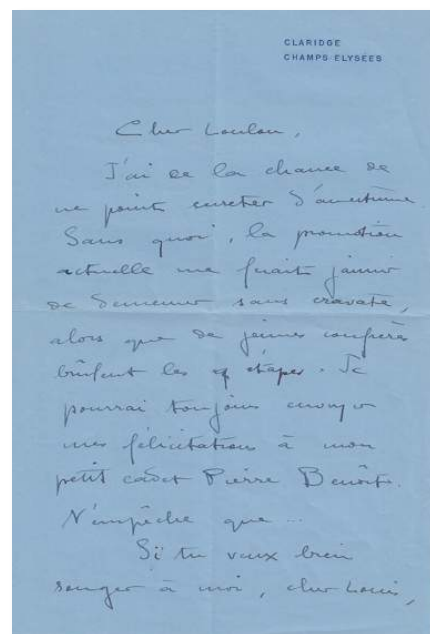 CLARIDGE
CHAMPS ELYSÉES
Cher Loulou,
J'ai de la chance de
ne point d'amertume
Sans quoi, la promotion
actuelle me ferait jaunir
de demeurer sans cravate,
alors que de jeunes confrères
brûlent les étapes. Je
pourrai toujours envoyer
mes félicitations à mon
petit cadet Pierre Benoît.
N'empêche que ...
Si tu veux bien
songer à moi, cher Louis,